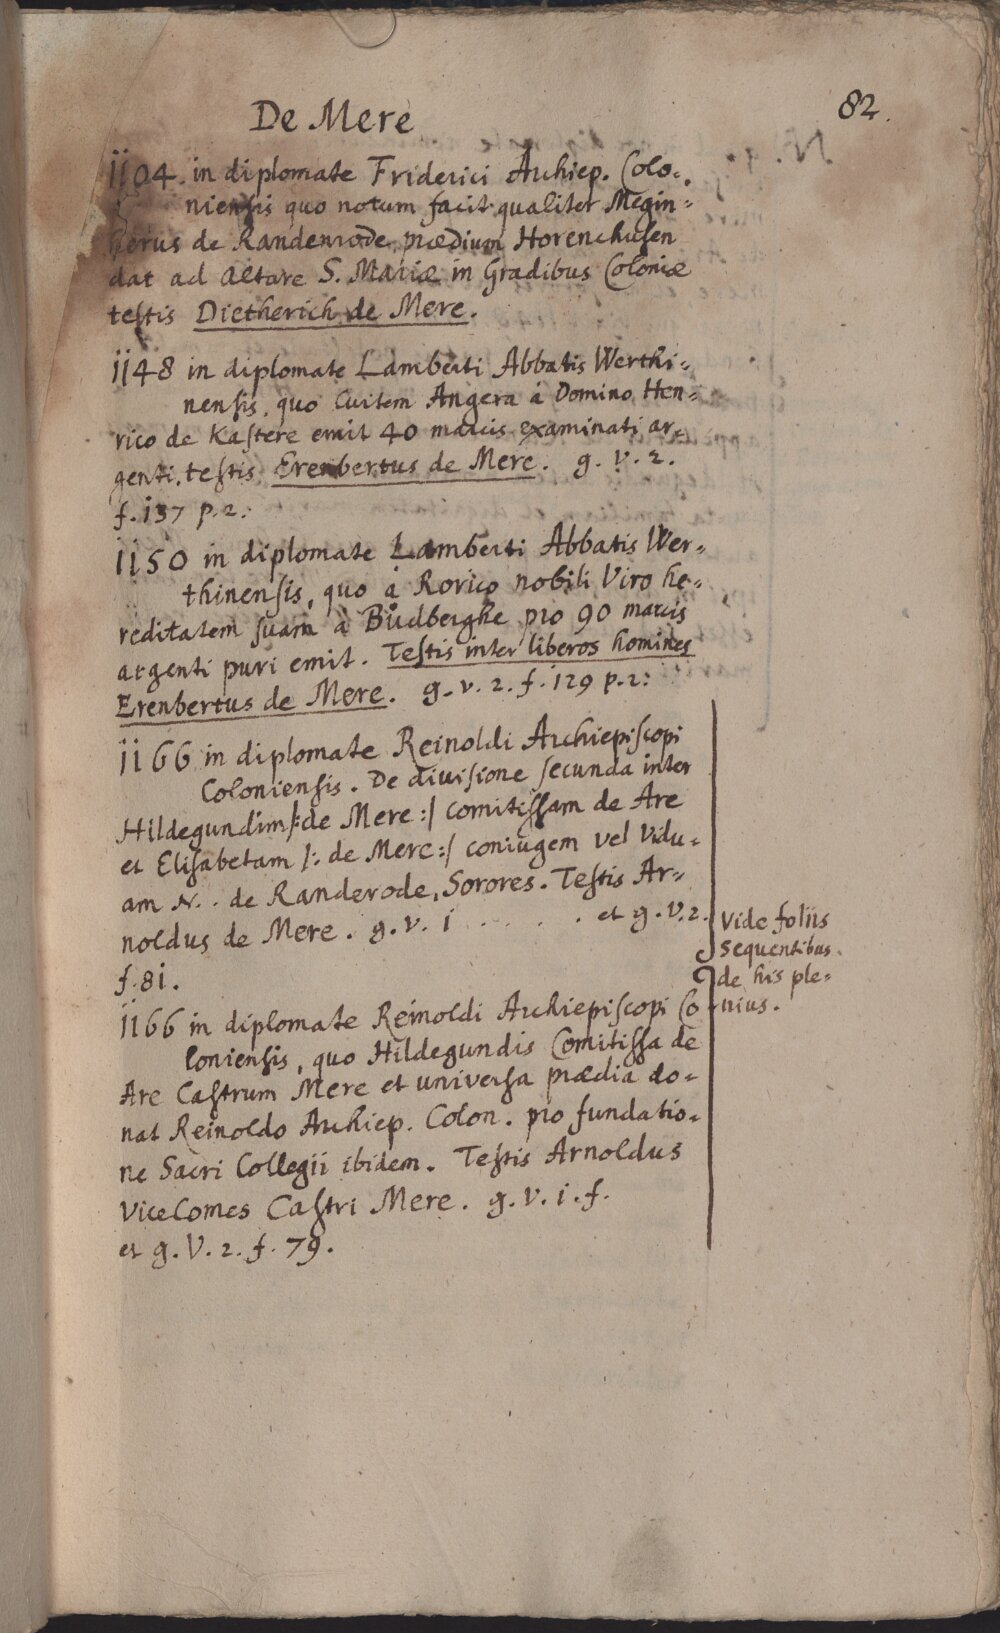 82.
De Mere
1104. in diplomate Friderici Archiep. Colo=
niensis quo notum facit qualiter Megin=
herus de Randenrode prædium Horenchusen
dat ad altare S. Mariæ in Gradibus Coloniæ
testis Dietherich de Mere.
1148 in diplomate Lamberti Abbatis Werthi=
nensis, quo Curtem Angera à Domino Hen=
rico de Kastere emit 40 marcis examinati ar=
genti, testis Erenbertus de Mere. g. V. 2.
f. 137 p. 2:
1150 in diplomate Lamberti Abbatis Wer=
thinensis, quo à Rorico nobili Viro he=
reditatem suam à Büdberghe pro 90 marcis
argenti puri emit. Testis inter liberos homines
Erenbertus de Mere. g. v. 2. f. 129 p. 2:
1166 in diplomate Reinoldi Archiepiscopi
Coloniensis. De divisione secunda inter
Hildegundim /: de Mere :/ comitissam de Are
et Elisabetam /: de Mere :/ coniugem vel vidu=
am N. . de Randerode, Sorores. Testis Ar=
noldus de Mere. g. v. 1 . . . . . et g. V. 2.
f. 81.
Vide foliis
sequentibus
de his ple=
nius.
1166 in diplomate Reinoldi Archiepiscopi Co=
loniensis, quo Hildegundis Comitissa de
Are Castrum Mere et universa prædia do=
nat Reinoldo Archiep. Colon. pro fundatio=
ne Sacri Collegii ibidem. Testis Arnoldus
ViceComes Castri Mere. g. V. 1. f.
et g. V. 2. f. 79.